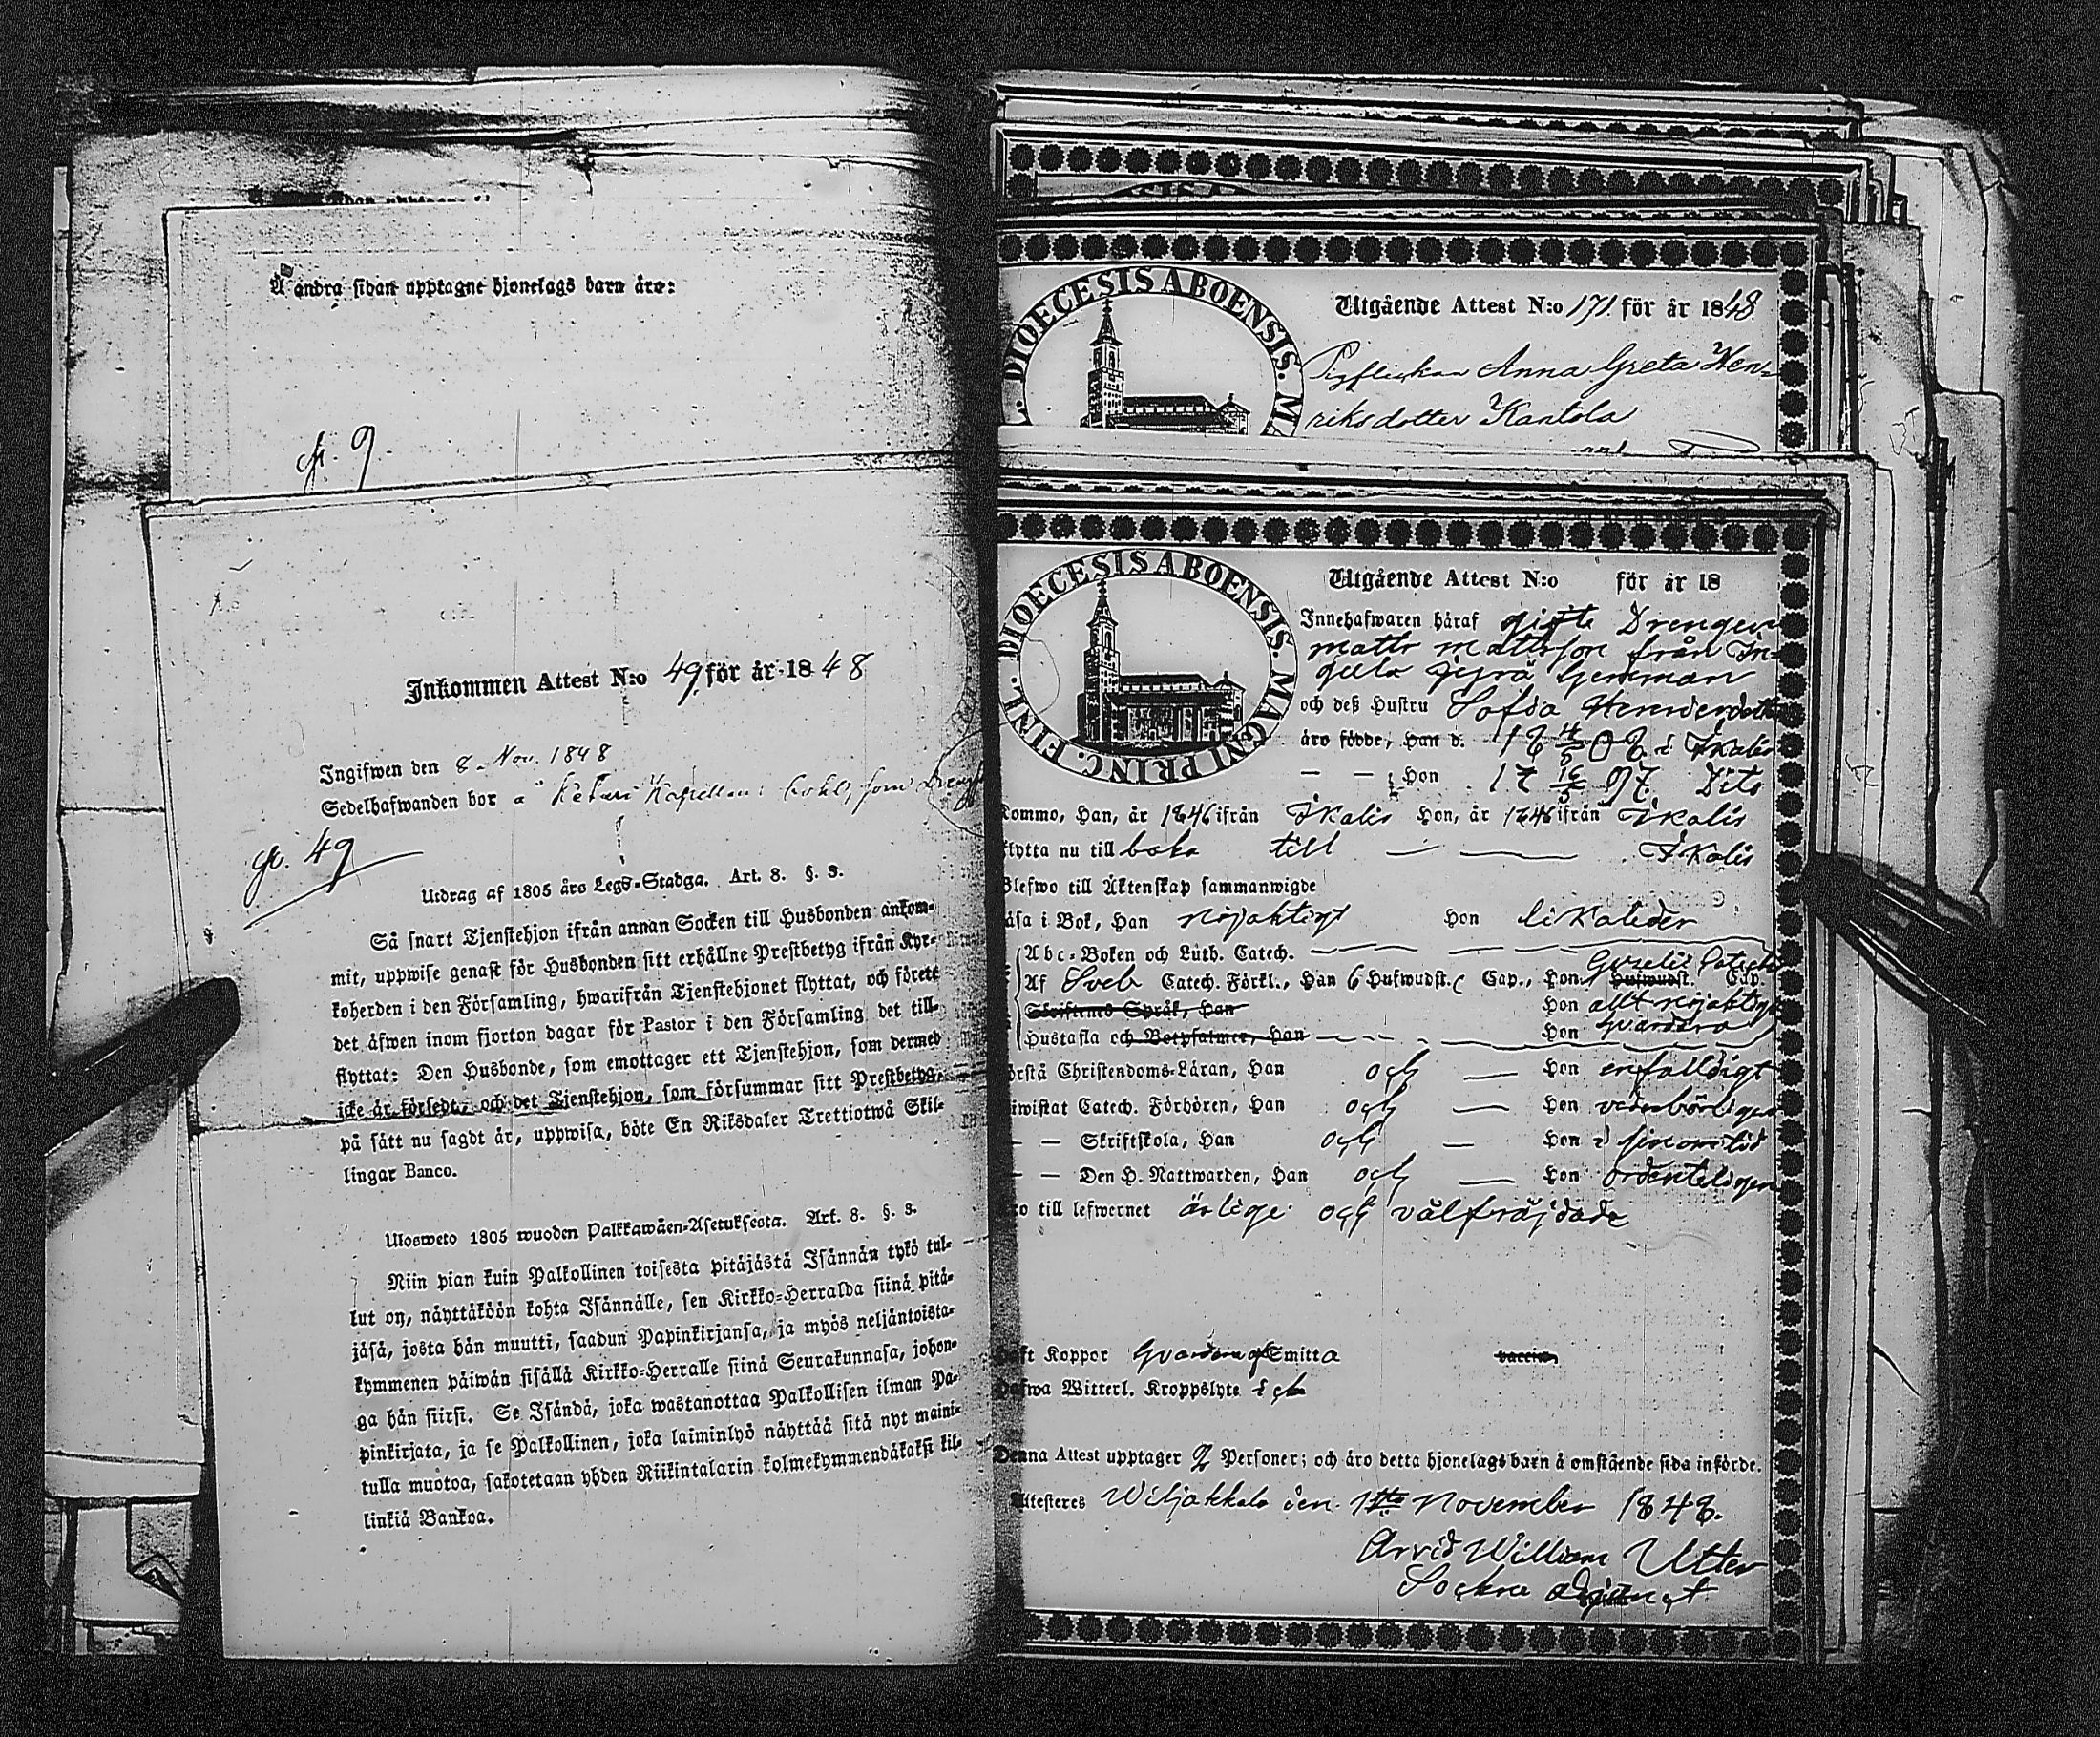 Å andra sidan upptagne hjonelags barn äro:
N. 9.
Inkommen Attest N:o 49 för år 1848
Ingifwen den 8 Nov. 1848
Sedelhafwanden bor
N. 49
Utdrag af 1805 åro Legs-Stadga. Art. 8. §. 3.
Så snart Tjenstehjon ifrån annan Socken till Husbonden ankom-
mit, uppwise genast för Husbonden sitt erhållne Prestbetyg ifrån Kyr-
koherden i den Församling, hwarifrån Tjenstehjonet flyttat, och förete
det äfwen inom fjorton dagar för Pastor i den Församling det till-
flyttat: Den Husbonde, som emottager ett Tjenstehjon, som dermed
icke är försedt, och det Tjenstehjon, som försummar sitt Prestbetyg,
på sätt nu sagdt är, uppwisa, böte En Riksdaler Trettiotwå Skil-
lingar Banco.
Ulosweto 1805 wuoden Palkkawäen-Asetuksesta. Art. 8. §. 3.
Niin pian kuin Palkollinen toisesta pitäjästä Isännän tykö tul-
lut on, näyttäköön kohta Isännälle, sen Kirkko-Herralda siinä pitä-
jäsä, josta hän muutti, saadun Papinkirjansa, ja myös neljäntoista-
kymmenen päiwän sisällä Kirkko-Herralle siinä Seurakunnasa, johon-
ga hän siirsi. Se Isändä, joka wastanottaa Palkollisen ilman Pa-
pinkirjata, ja se Palkollinen, joka laiminlyö näyttää sitä nyt maini-
tulla muotoa, sakotetaan yhden Riikintalarin kolmekymmendäkaksi kil-
linkiä Bankoa.
DIOECESIS ABOENSIS. MA
Utgående Attest N:o 171 för år 1848
Pigflickan Anna Greta Hen-
riksdotter Kantola
DIOECESIS ABOENSIS. MAGNI PRINC. FINL.
Utgående Attest N:o för år 18
Innehafwaren häraf gifte Drengen
Matts Mattsson från In-
och deß Hustru Sofia
äro födde, Han d. 18 4/5 08 i Ikalis
— — Hon 17 16/5 97. Dito
Kommo, Han, år 1846 ifrån Ikalis Hon, år 1846 ifrån Ikalis
flytta nu till baka till — — Ikalis
Blefwo till Äktenskap sammanwigde
läsa i Bok, Han nöjaktigt Hon likaledes
Abc-Boken och Luth. Catech. — —
Af Sveb Catech. Förkl., Han 6 Hufwudst. Cap., Hon Hufwudst. Cap.
Skriftenes Språk, Han Hon allt nöjaktigt
Hustafla och Botpsalmer, Han — — Hon
örstå Christendoms-Läran, Han och — Hon enfaldigt
iwistat Catech. Förhören, Han och — Hon vederbörligen
— — Skriftskola, Han och — Hon i sinom tid
— — Den H. Nattwarden, Han och — Hon ordenteligen
ro till lefwernet ärlige och välfräjdade
Haft Koppor Smitta vaccin.
Hafwa Witterl. Kroppslyte
Denna Attest upptager 2 Personer; och äro detta hjonelags barn å omstående sida införde.
Attesteres Wiljakkala den 1sta November 1848.
Arvid William Utter
Sockne Adjunct